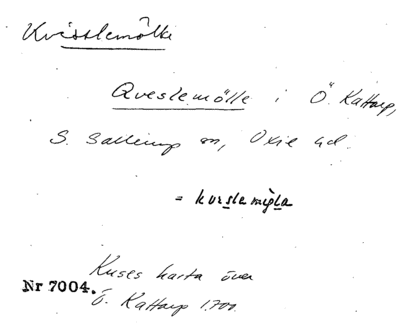 Kvisslemölle
Qveslemölle i Ö. Kattarp,
S. Sallerup sn, Oxie hd.
= kvislemigla
Kuses karta över
Nr 7004.
Ö. Kattarp 1700.